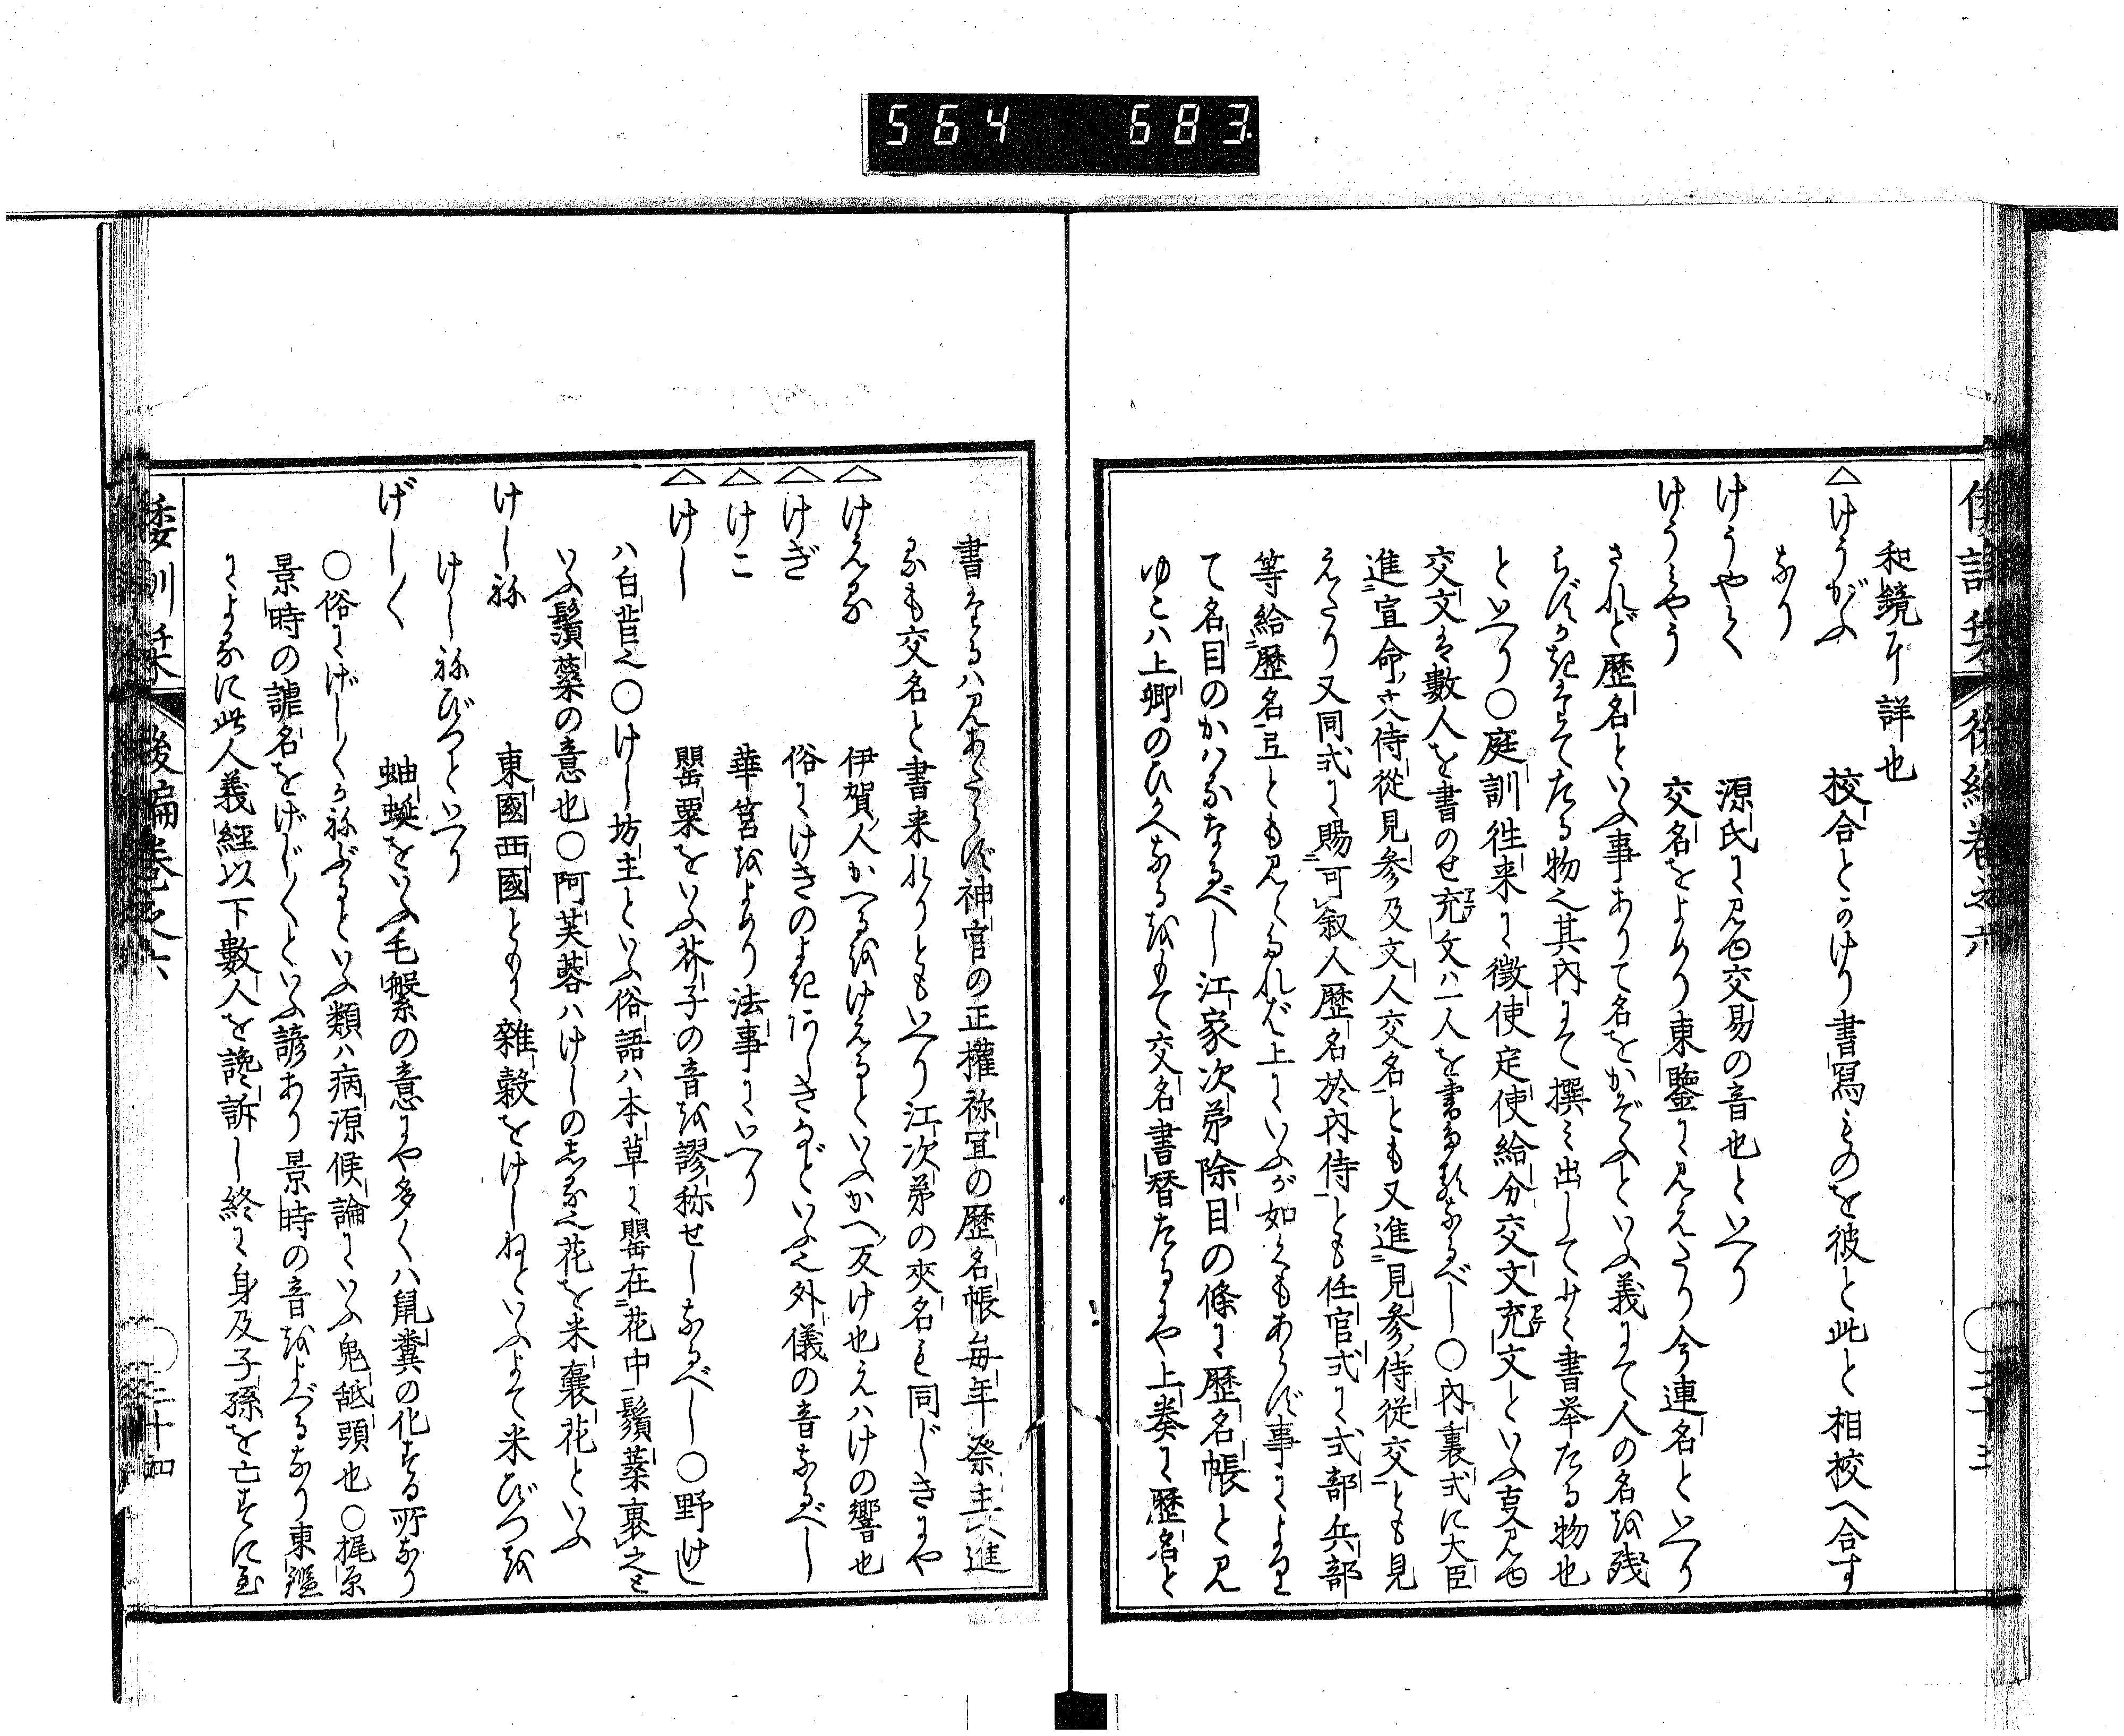 564 683.
倭訓栞 後編巻之六 二十三
和鏡下詳也
△けうがふ 校合とかけり書寫ものを彼と此と相挍へ合す
なり
けうやく 源氏に見ゆ交易の音也といへり
けうみやう 交名をよめり東鑒に見えたり今連名といへり
されど歷名といふ事ありて名をかぞふといふ義にて人の名を残
らずかきたてたる物也其內にて撰み出してよく書挙たる物也
といへり〇庭訓徃来に徴使定使給分交文充文といふ事見ゆ
交文は數人を書のせ充文ハ一人を書なるべし〇內裏式に大臣
進宣命八侍從見參及文人交名とも又進見參侍従交とも見
えたり又同式に賜可叙人歷名於內侍とも任官式に式部兵部
等給歷名互とも見ゆれば上にいふが如くもあらず事により
て名目のかハるなるべし江家次第除目の條に歷名帳と見
ゆこハ上卿のひかへなるをもて交名書替たるにや上奏に歷名と
書せるハ見あたらず神官の正權祢宜の歷名帳毎年祭主へ進
るも交名と書来れりともいへり江次第の夾名も同じきにや
△けえる 伊賀人かへるをけえるといふかへ反け也えハけの響也
△けぎ 俗にけきのよきけしきなどいふ也外儀の音なるべし
△けこ 華筥をよめり法事にいへり
△けし 罌粟をいふ芥子の音を謬称せしなるべし〇野けし
ハ白苣也〇けし坊主といふ俗語ハ本草に罌在花中鬚蘂裹之と
いふ鬚蘂の意也〇阿芙蓉ハけしのしる也花を米囊花といふ
けしね 東國西國ともに雜穀をけしねといふよて米びつを
けしねびつといへり
げし〱 蚰蜒をいふ毛繁の意にや多くハ鼠糞の化する所なり
〇俗にげし〱かねぶるといふ類ハ病源候論にいふ鬼舐頭也〇梶原
景時の謔名をげぢ〱といふ諺あり景時の音をよべるなり東鑑
によるに此人義経以下數人を讒訴し終に身及子孫を亡するに至
倭訓栞 後編巻之六 二十四